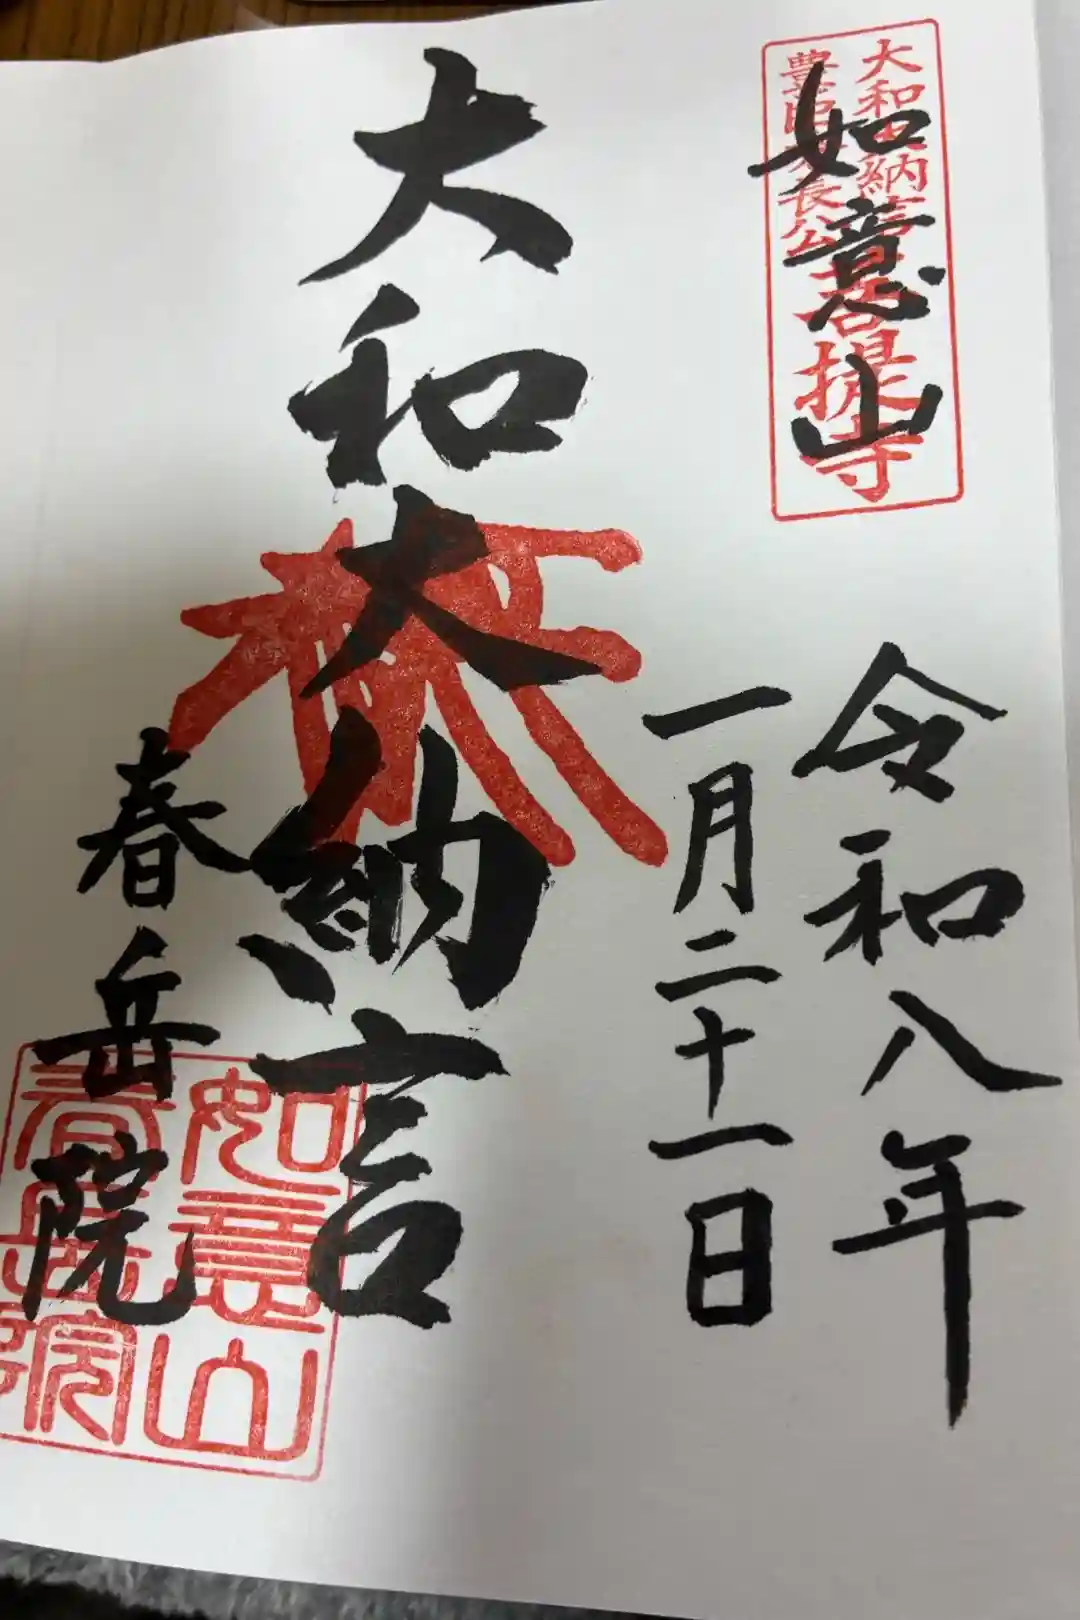 如意山
大和大納言
豊臣秀長公
菩提寺
令和八年
一月二十一日
大和大納言
春岳院
如意山
春岳院